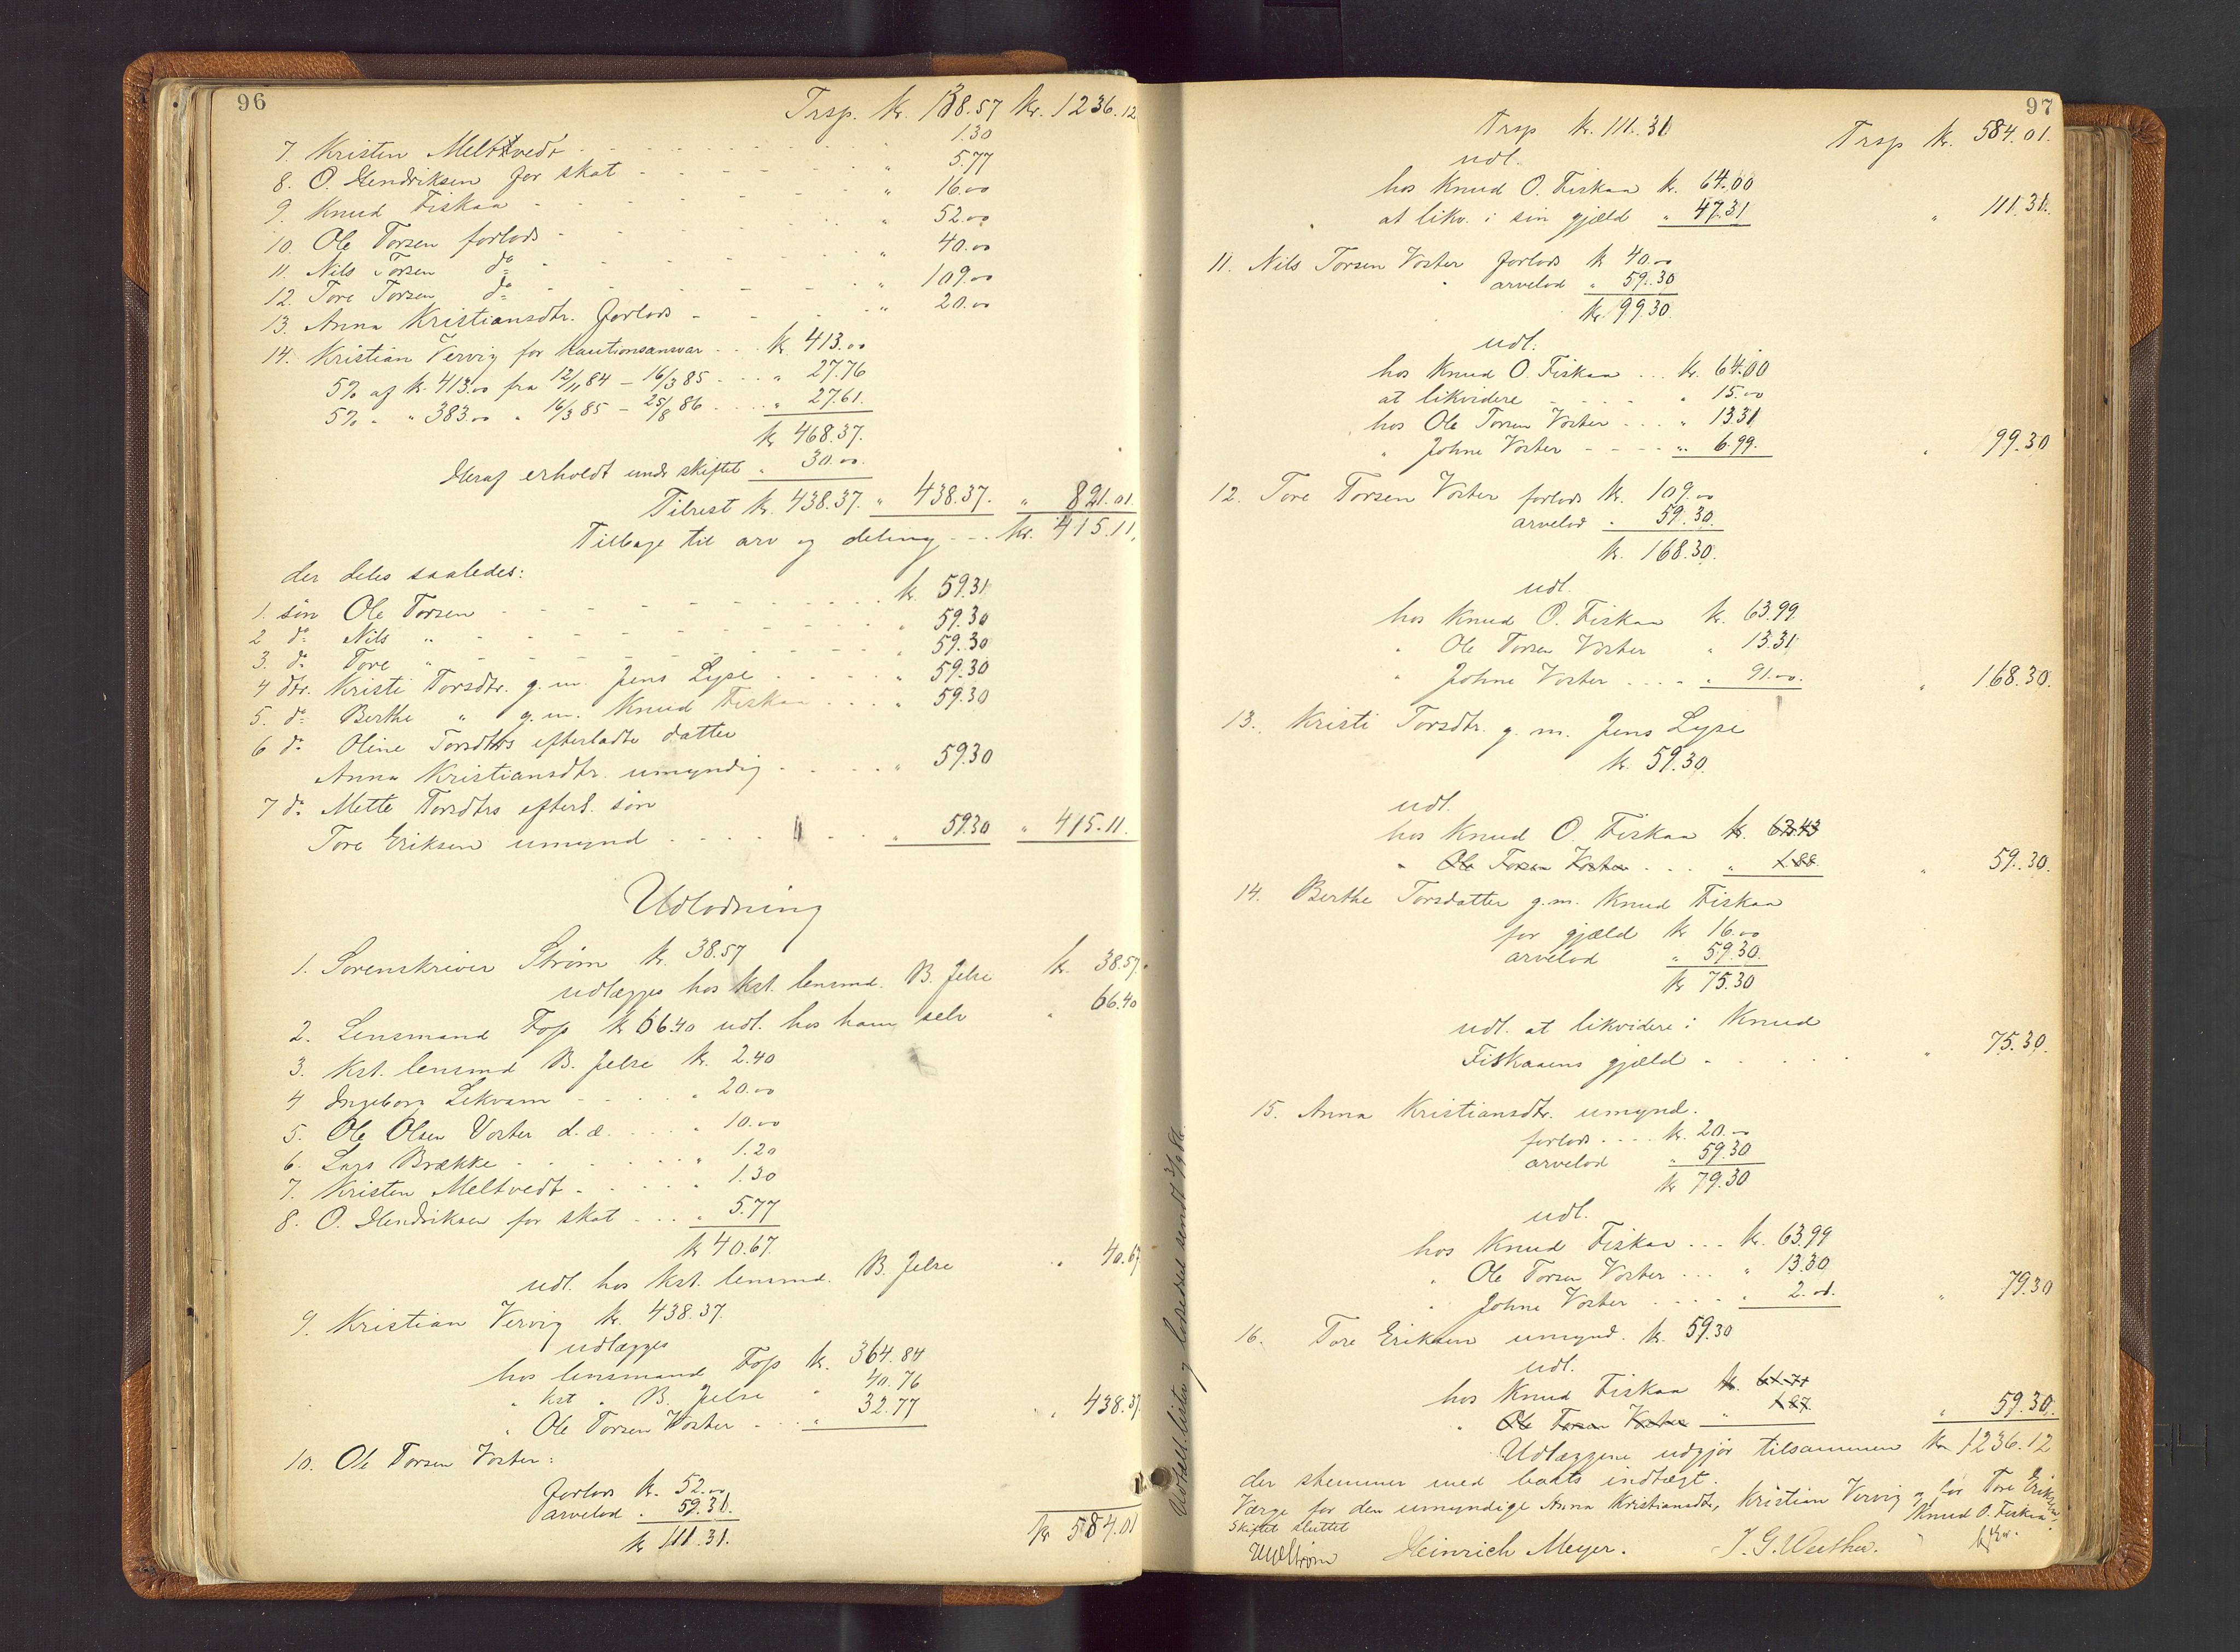 96
Trsp. kr. 138.57 kr. 1236.12
7. Kristen Meltvedt - - - - 1.30
8. O. Hendriksen for skat - - - - " 5.77
9. Knud Fiskaa - - - - " 16.00
10. Ole Torsen forlods - - - - " 52.00
11. Nils Torsen do - - - - " 40.00
12. Tore Torsen do - - - - " 109.00
13. Anna Kristiansdtr. forlods - - - " 20.00
14. Kristian Vervig for kautionsansvar . . . kr. 413.00
5% af kr. 413.00 fra 12/11 84 - 16/3 85 . . . " 27.76
5% " " 383.00 " 16/3 85 - 25/8 86 . . . " 27.61.
kr. 468.37.
Heraf erholdt under skiftet " 30.00.
Tilrest kr. 438.37. " 438.37. " 821.01
Tilbage til arv og deling - - - kr. 415.11.
der deles saaledes:
1. søn Ole Torsen - - - - kr. 59.31
2 do Nils " - - - - " 59.30
3. do Tore " - - - - " 59.30
4 dtr. Kristi Torsdtr. g. m. Jens Lyse . . . . " 59.30
5. do Berthe " g. m. Knud Fiskaa . . . . " 59.30
6 do Oline Torsdtrs efterladte datter
Anna Kristiansdtr. umyndig . . . . " 59.30
7 do Mette Torsdtrs efterl. søn
Tore Eriksen umynd . . . . " 59.30 " 415.11.
Udlodning
1. Sorenskriver Strøm kr. 38.57
udlægges hos kst. lensmd. B. Jelse kr. 38.57.
2. Lensmand Fop kr. 66.40 udl. hos ham selv " 66.40
3. Kst. lensmd B. Jelse kr. 2.40
4 Ingeborg Lekvam - - - . " 20.00
5. Ole Olsen Voster d. æ. . . . " 10.00
6. Lars Brække - . . . . " 1.20
7. Kristen Meltvedt - . . . " 1.30
8. O. Hendriksen for skat . . . " 5.77
kr. 40.67.
udl. hos kst. lensmd. B. Jelse " 40.67
9. Kristian Vervig kr. 438.37.
udlægges
hos lensmand Fop kr. 364.84
" kst " B. Jelse " 40.76
" Ole Torsen Voster - . . " 32.77 " 438.37
10. Ole Torsen Voster:
forlods kr. 52.00
arvelod . 59.31.
kr. 111.31.
kr. 584.01
Udtell. lister og losedel sendt 3/9 86.
97
Trsp kr. 111.31 Trsp kr. 584.01.
udl.
hos Knud O. Fiskaa kr. 64.00
at likv. i sin gjæld " 47.31 " 111.31.
11. Nils Torsen Voster forlods kr 40.00
arvelod " 59.30
kr. 99.30.
udl.
hos Knud O. Fiskaa . . . kr. 64.00
at likvidere - - - . " 15.00
hos Ole Torsen Voster . . . " 13.31
" Johne Voster - - - - " 6.99. " 99.30
12. Tore Torsen Voster forlods kr. 109.00
arvelod " 59.30.
kr. 168.30.
udl.
hos Knud O. Fiskaa kr. 63.99.
" Ole Torsen Voster " 13.31
" Johne Voster . . . . " 91.00. " 168.30.
13. Kristi Torsdtr. g. m. Jens Lyse
kr. 59.30.
udl.
hos Knud O. Fiskaa kr. 63.43
" Ole Torsen Voster . . . " 1.88 " 59.30.
14. Berthe Torsdatter g. m. Knud Fiskaa
for gjæld kr 16.00
arvelod " 59.30.
kr 75.30
udl. at likvidere i Knud
Fiskaaens gjæld - . . . . " 75.30.
15. Anna Kristiansdtr. umynd.
forlods . . . . kr. 20.00
arvelod " 59.30
kr 79.30
udl.
hos Knud Fiskaa . . . kr. 63.99
" Ole Torsen Voster . . . " 13.30
" Johne Voster . . . . " 2.01. " 79.30
16. Tore Eriksen umynd. kr. 59.30
udl.
hos Knud Fiskaa kr. 61.71
" Ole Torsen Voster " 1.87 " 59.30.
Udlæggene udgjør tilsammen kr 1236.12
der stemmer med boets indtægt.
Værge for den umyndige Anna Kristiansdtr, Kristian Vervig og for Tore Eriksen,
Knud O. Fiskaa.
Skiftet sluttet
Strøm Heinrich Meyer.